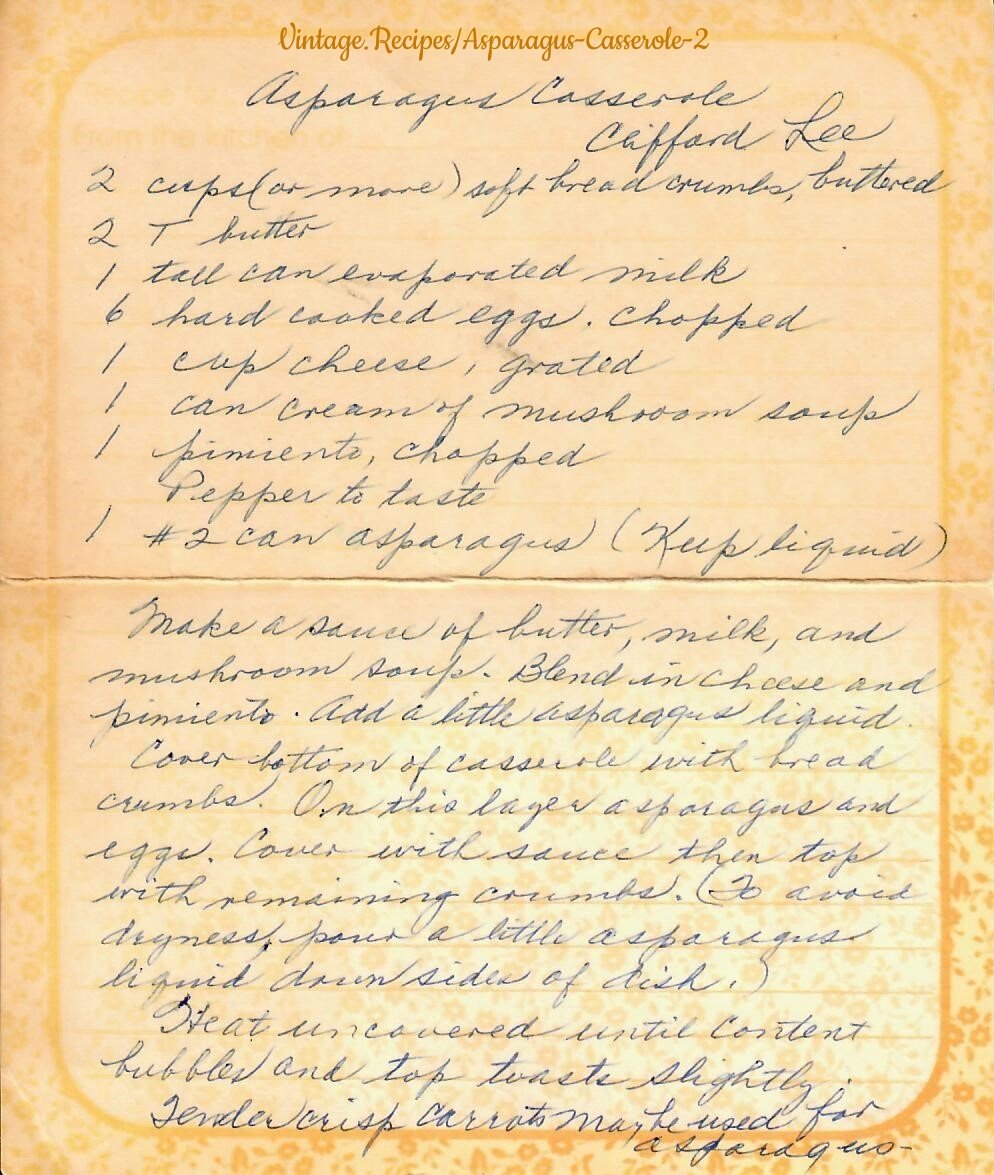 Vintage.Recipes/Asparagus-Casserole-2
Asparagus Casserole
Clifford Lee
2 cups (or more) soft bread crumbs, buttered
2 T butter
1 tall can evaporated milk
6 hard cooked eggs. chopped
1 cup cheese, grated
1 can cream of mushroom soup
1 pimiento, chopped
Pepper to taste
1 #2 can asparagus (Keep liquid)
Make a sauce of butter, milk, and
mushroom soup. Blend in cheese and
pimiento. Add a little asparagus liquid.
Cover bottom of casserole with bread
crumbs. On this layer asparagus and
eggs. Cover with sauce then top
with remaining crumbs. (To avoid
dryness, pour a little asparagus
liquid down sides of dish.)
Heat uncovered until content
bubbles and top toasts slightly.
Tender crisp carrots may be used for
asparagus-